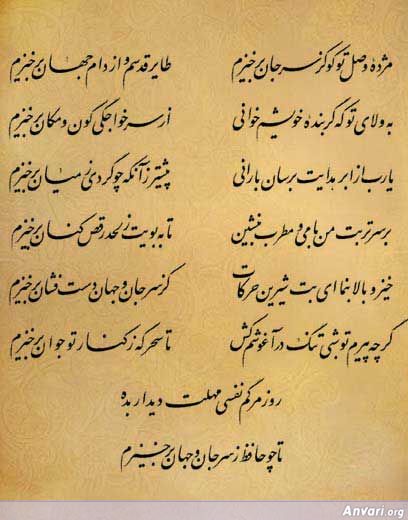 مژدهٔ وصل تو کو کز سر جان برخیزم طایر قدسم و از دام جهان برخیزم
به ولای تو که گر بندهٔ خویشم خوانی از سر خواجگی کون و مکان برخیزم
یارب از ابر هدایت برسان بارانی پیشتر زآنکه چو گردی ز میان برخیزم
بر سر تربت من با می و مطرب بنشین تا به بویت ز لحد رقص کنان برخیزم
خیز و بالا بنما ای بت شیرین حرکات کز سر جان و جهان دست فشان برخیزم
گرچه پیرم تو شبی تنگ در آغوشم کش تا سحرگه ز کنار تو جوان برخیزم
روز مرگم نفسی مهلت دیدار بده
تا چو حافظ ز سر جان و جهان برخیزم
Anvari.org